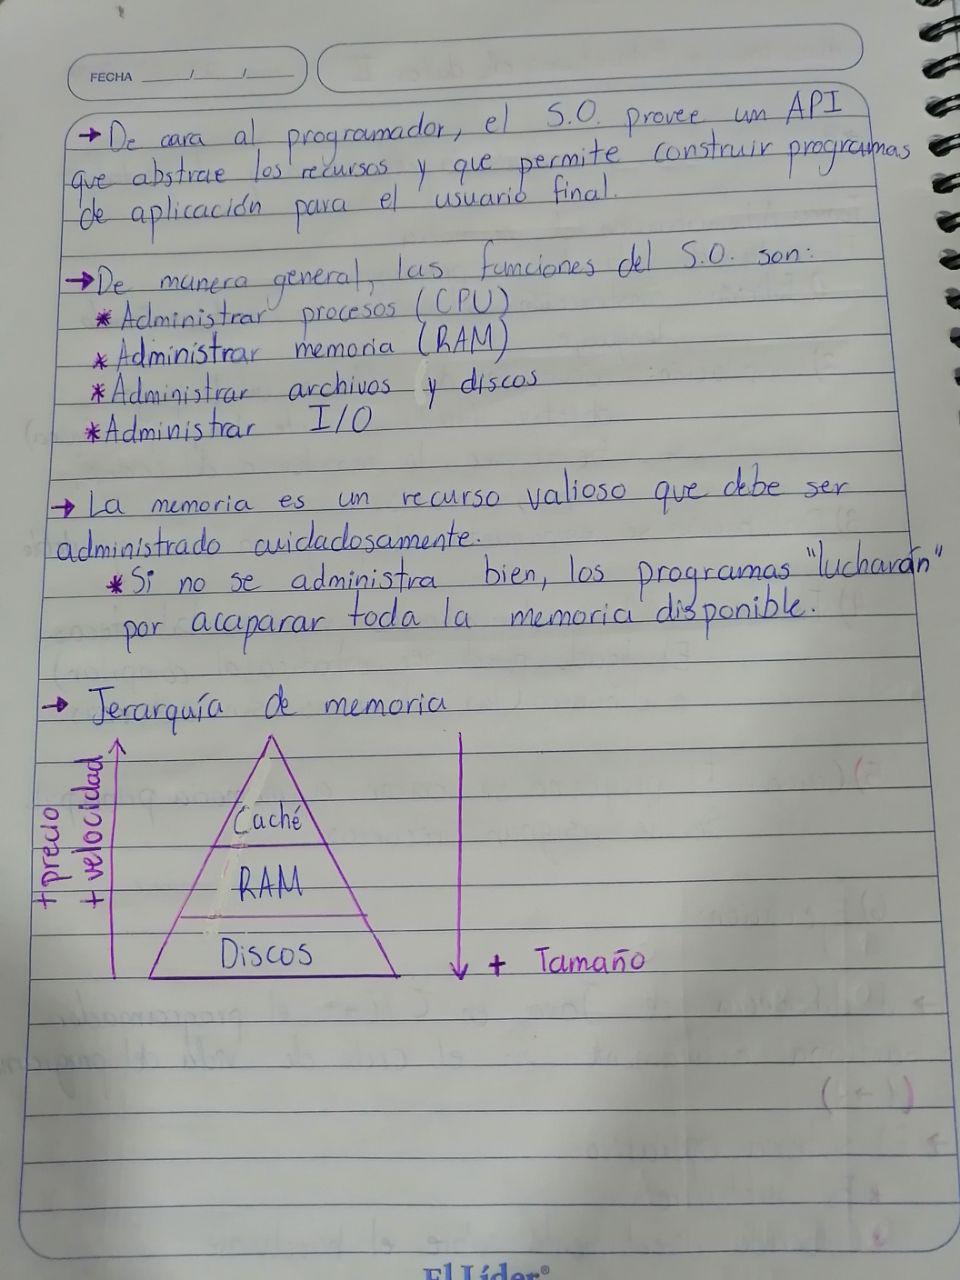 FECHA ___/___/___
→ De cara al programador, el S.O. provee un API
que abstrae los recursos y que permite construir programas
de aplicación para el usuario final.
→ De manera general, las funciones del S.O. son:
* Administrar procesos (CPU)
* Administrar memoria (RAM)
* Administrar archivos y discos
* Administrar I/O
→ La memoria es un recurso valioso que debe ser
administrado cuidadosamente.
* Si no se administra bien, los programas "lucharán"
por acaparar toda la memoria disponible.
→ Jerarquía de memoria
+ precio
+ velocidad
Caché
RAM
Discos
+ Tamaño
El Líder®